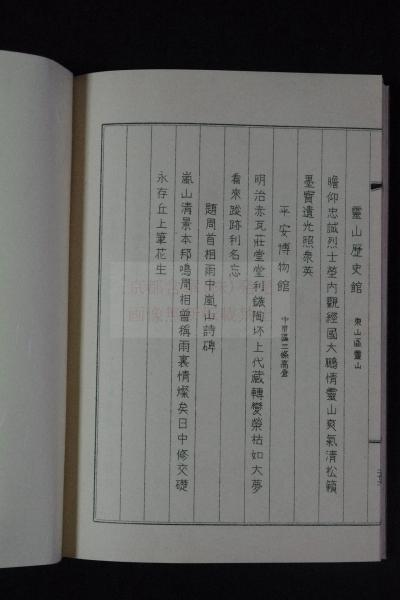 靈山歴史館 東山區靈山
瞻仰忠誠烈士塋内觀經國大鵬情靈山爽氣清松籟
墨寶遺光照衆英
平安博物館 中京區三條高倉
明治赤瓦莊堂堂利鏃陶坏上代藏轉變榮枯如大夢
看來蹤跡利名忘
題周首相雨中嵐山詩碑
嵐山清景本邦鳴周相曾稱雨裏情燦矣日中修交礎
永存丘上筆花生